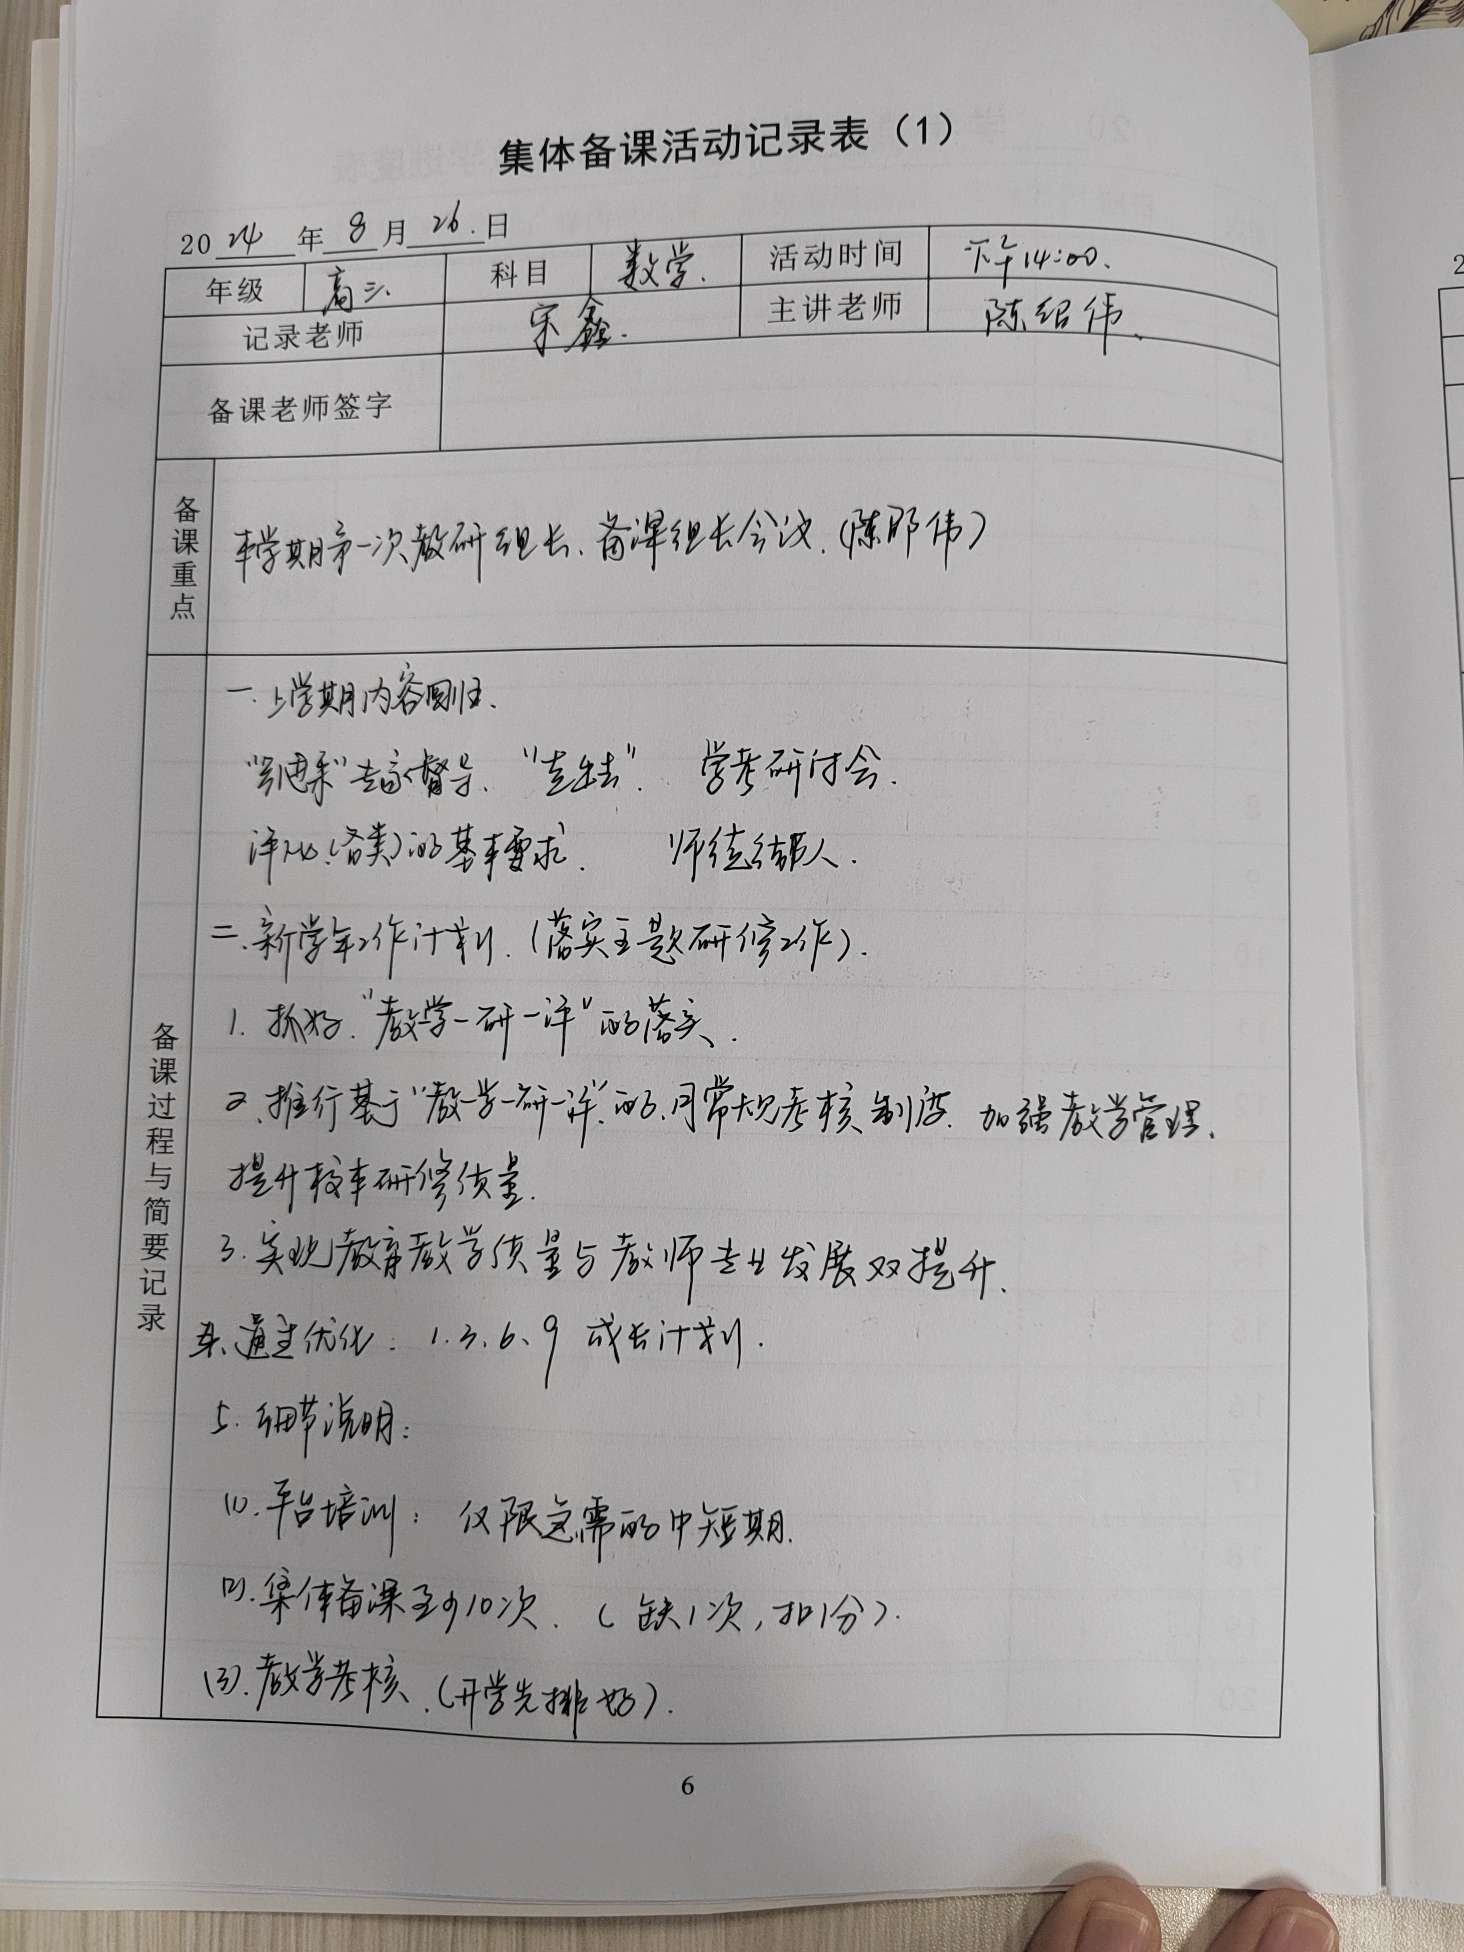 集体备课活动记录表（1）
2024年8月26日
年级 高三 科目 数学 活动时间 下午14:00
记录老师 宋鑫 主讲老师 陈绍伟
备课老师签字
备课重点
本学期第一次教研组长、备课组长会议.(陈 伟)
备课过程与简要记录
一.上学期内容回归.
专家督导、"走出去". 学考研讨会.
评比(各类)的基本要求. 师徒结对.
二、新学年工作计划.(落实主题研修工作).
1. 抓好"教学-研-评"的落实.
2.推行基于"教-学-研-评"的月常规考核制度.加强教学管理、
提升校本研修质量.
3.实现教育教学质量与教师专业发展双提升.
优化: 1.3、6、9 成长计划.
5.细节说明:
(1).平台培训: 仅限急需的中短期.
(2).集体备课至少10次.(缺1次,扣1分).
(3).教学考核.(开学先排好).
6